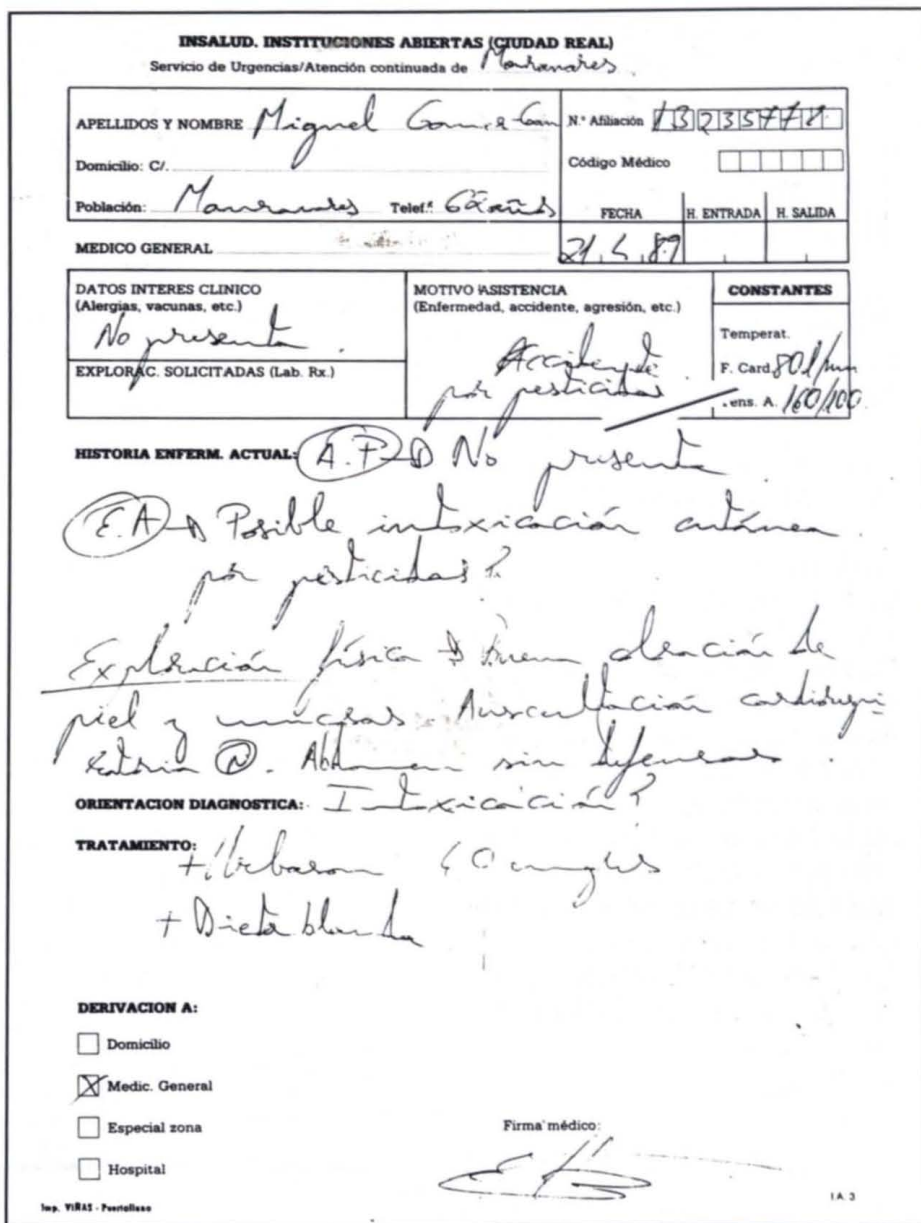 INSALUD. INSTITUCIONES ABIERTAS (CIUDAD REAL)
Servicio de Urgencias/Atención continuada de Manzanares
APELLIDOS Y NOMBRE Miguel
N.º Afiliación
Domicilio: C/.
Código Médico
Población: Manzanares Telef.º
FECHA H. ENTRADA H. SALIDA
MEDICO GENERAL
DATOS INTERES CLINICO
(Alergias, vacunas, etc.)
No presenta
EXPLORAC. SOLICITADAS (Lab. Rx.)
MOTIVO ASISTENCIA
(Enfermedad, accidente, agresión, etc.)
Accidente
por pesticidas
CONSTANTES
Temperat.
F. Card. 80 l/min
Tens. A. 160/100
HISTORIA ENFERM. ACTUAL: A.P No presenta
E.A Posible intoxicación cutánea
por pesticidas?
Exploración física Buena coloración de
piel y mucosas. Auscultación cardiorespi-
ratoria N. Abdomen sin defensas.
ORIENTACION DIAGNOSTICA: Intoxicación?
TRATAMIENTO:
+ Urbason
+ Dieta blanda
DERIVACION A:
Domicilio
Medic. General
Especial zona
Hospital
Firma médico:
Imp. VIÑAS - Puertollano
I.A. 3